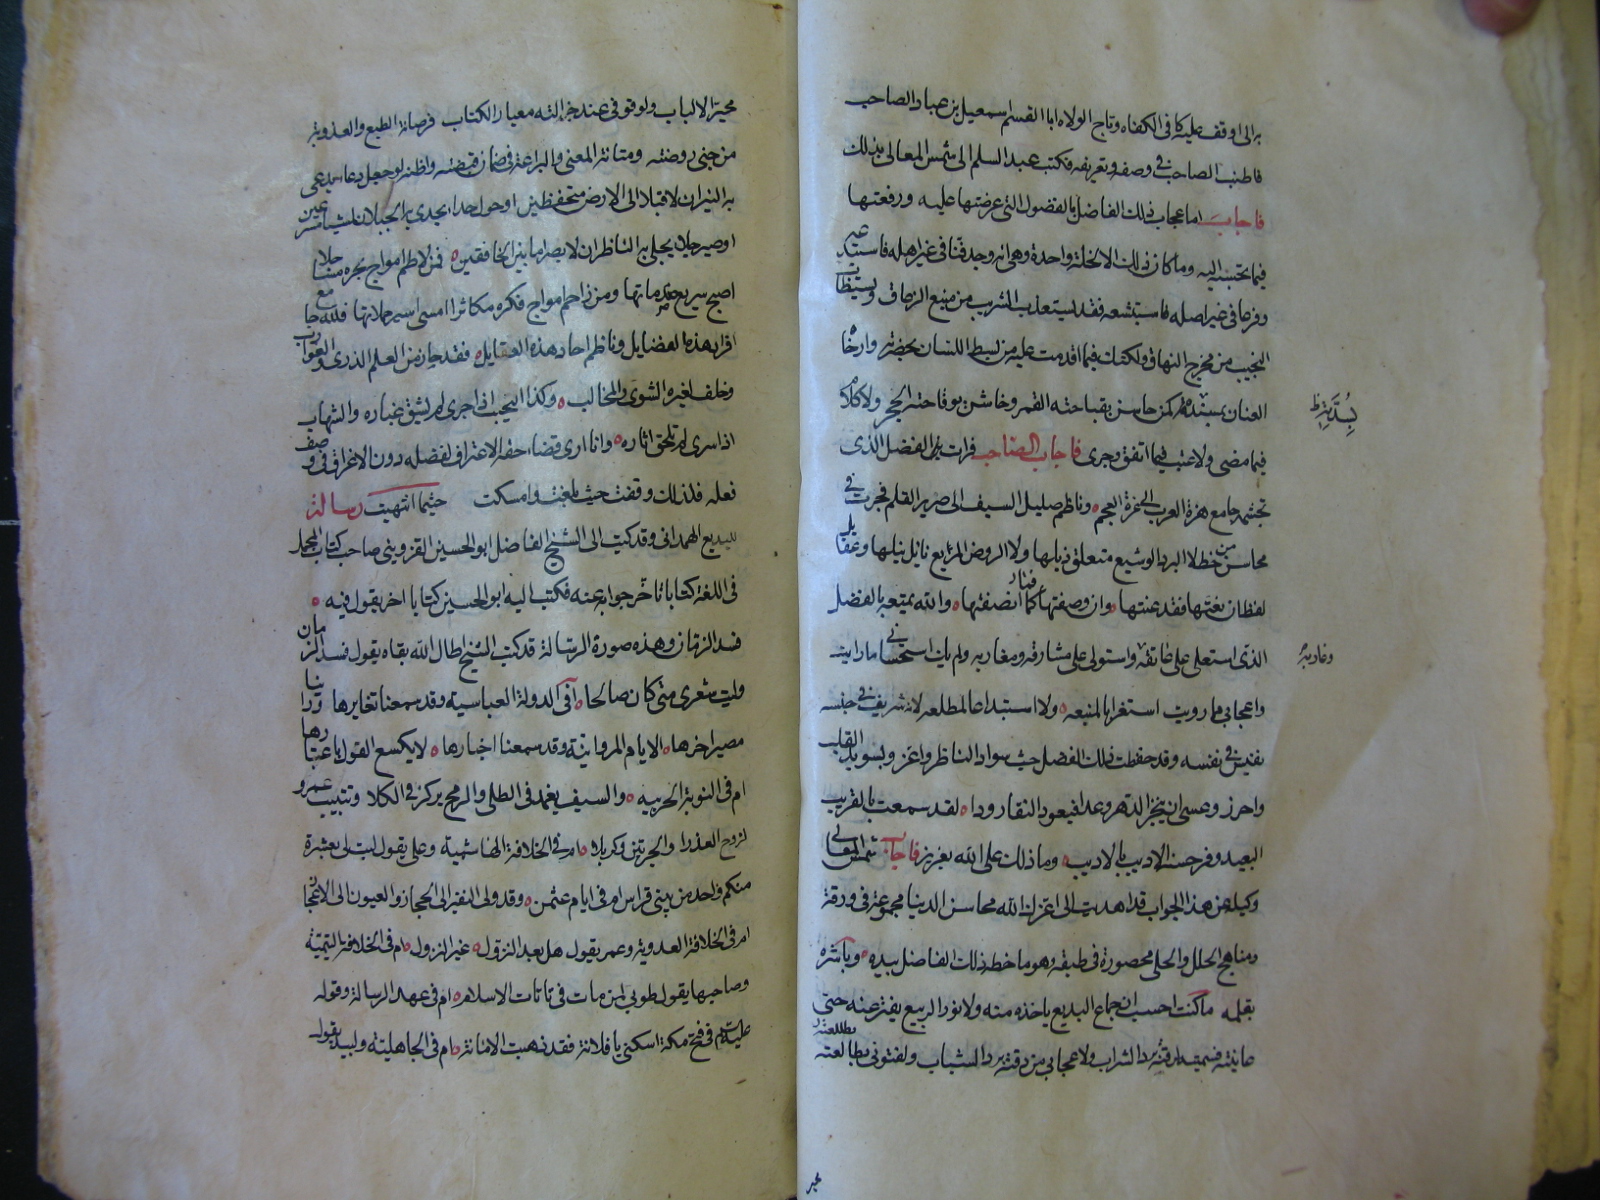 به الى اوقف عليه كافى الكفاه وتاج الولاه ابا القسم اسمعيل بن عباد الصاحب
فاطنب الصاحب فى وصفه وتعريفه فكتب عبد السلم الى شمس المعالى بذلك
فاجاب اما عجاب ذلك الفاضل بالفضول التى عرضتها عليه ورفعتها
فيما تحتسبه اليه وما كان ذلك الا لخلة واحدة وهى انه وجد فنا فى غير اهله فاستبد
وفرعا فى غير اصله فاستبشعه فقد يستعذب الشريب من منبع الزعاق ويستطاب
النجيب من مخرج النهاق ولكنك فيما اقدمت عليه من بسط اللسان بحضرته وارخا
العنان بمسنده كمن حاسن بقباحته القمر وخاشن بوقاحته الحجر ولا كلام
فيما مضى ولا عتب فيما اتفق وجرى فاجاب الصاحب قرات الفضل الذى
تجشمه جامع هزة العرب الى عزة العجم وناظم صليل السيف الى صرير القلم فجرت فى
محاسن خطه لا البرد الوشيع متعلق بذيلها ولا الروض المريع نايل نيلها وعقايل
لفظ ان نعتها فقد عنتها وان وصفتها فما انصفتها والله يمتعه بالفضل
الذى استعلى على عاتقه واستولى على مشارقه ومغاربه ولم يك استحسانى ما رايت
واعجابى بما رويت استغرابا لمنبعه ولا استبداعا لمطلعه لانه شريف فى جنسه
نفيس فى نفسه وقد حفظت ذلك الفضل حيث سواد الناظر واعز وبسويدا القلب
واحرز وعسى ان ينجز الدهر وعدا فيعود النقار ودا لقد سمعت بالقريب
البعيد وفرحت الاديب بالاديب وما ذلك على الله بعزيز فاجاب شمس المعالى
وكيله عن هذا الجواب قد اهديت الى اعزك الله محاسن الدنيا مجموعة فى ورقة
ومناهج الحلل والحلى محصورة فى طبقة وهو ما خطه ذلك الفاضل بيده وباشره
بقلمه ما كنت احسب ان جماع البديع ياخذه منه ولا نور الربيع يفتر عنه حتى
عاينته فسميته لرقته برد الشراب ولاعجابى من دقته برد الشباب ولفتونى بمطالعته
بمطالعته
محير
وغاربه
محير الالباب ولوقوفى عند جزالته معيار الكتاب فرصانة الطبع والعذوبة
من جنى روضته ومتانة المعنى والبراعة فى ضمان قبضته واظنه لو جعل دعا يدعى
به النيران لاقبلا الى الارض منخفضين او حول حدا يحدى به الجبلان لمشيا مسرعين
او صير جلا يجلى به الناظران لابصر ما بين الخافقين فمن لاطم امواج بحره
اصبح سريع غرماتها ومن زاحم امواج فكره مكاثرا امسى اسير حملاتها فلله جامع
افراد هذه الفضايل وناظم احاد هذه العقايل فقد حاز من العلم الذرى والغوارب
وخلف لغيره الشوى والمخالب وكذا النجيب اذا جرى لم يشق غباره والشهاب
اذا سرى لم تلحق اثاره وانا ارى قضا حقه الاعتراف لفضله دون الاغراق فى وصف
فعله فلذلك وقفت حيث بلغت وامسكت حيثما انتهيت رسالة
للبديع الهمدانى وقد كتب الى الشيخ الفاضل ابو الحسين القزوينى صاحب كتاب المجمل
فى اللغة كتابا تاخر جوابه عنه فكتب اليه ابو الحسين كتابا اخر يقول فيه
فسد الزمان وهذه صورة الرسالة قد كتب الشيخ اطال الله بقاه يقول فسد الزمان
وليت شعرى متى كان صالحا افى الدولة العباسية وقد سمعنا تغايرها وراينا
مصير اخرها الايام المروانية وقد سمعنا اخبارها لا يكسع القول باغبارها
ام فى النوبة الحربية والسيف يغمد فى الطلى والرمح يركز فى الكلا وتبييت عمرو
لزوج العذرا والحرتين وكربلا ام فى الخلافة الهاشمية وعلى يقول ليت لى بعشرة
منكم واحد من بنى فراس ام فى ايام عثمن وقد ولى النفير الى الحجاز والعيون الى الاعجاز
ام فى الخلافة العدوية وعمر يقول هل بعد النزول غير النزول ام فى الخلافة التيمية
وصاحبها يقول طوبى لمن مات فى نانات الاسلام ام فى عهد الرسالة وقوله
عليه السلم فى فتح مكة اسكتى يا فلانة فقد ذهبت الامانة ام فى الجاهلية ولبيد يقول